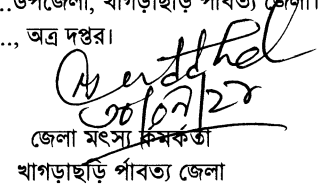 ..উপজেলা, খাগড়াছড়ি পার্বত্য জেলা।
.., অত্র দপ্তর।
৩০/০৭/২৪
জেলা মৎস্য কর্মকর্তা
খাগড়াছড়ি র্পাবত্য জেলা